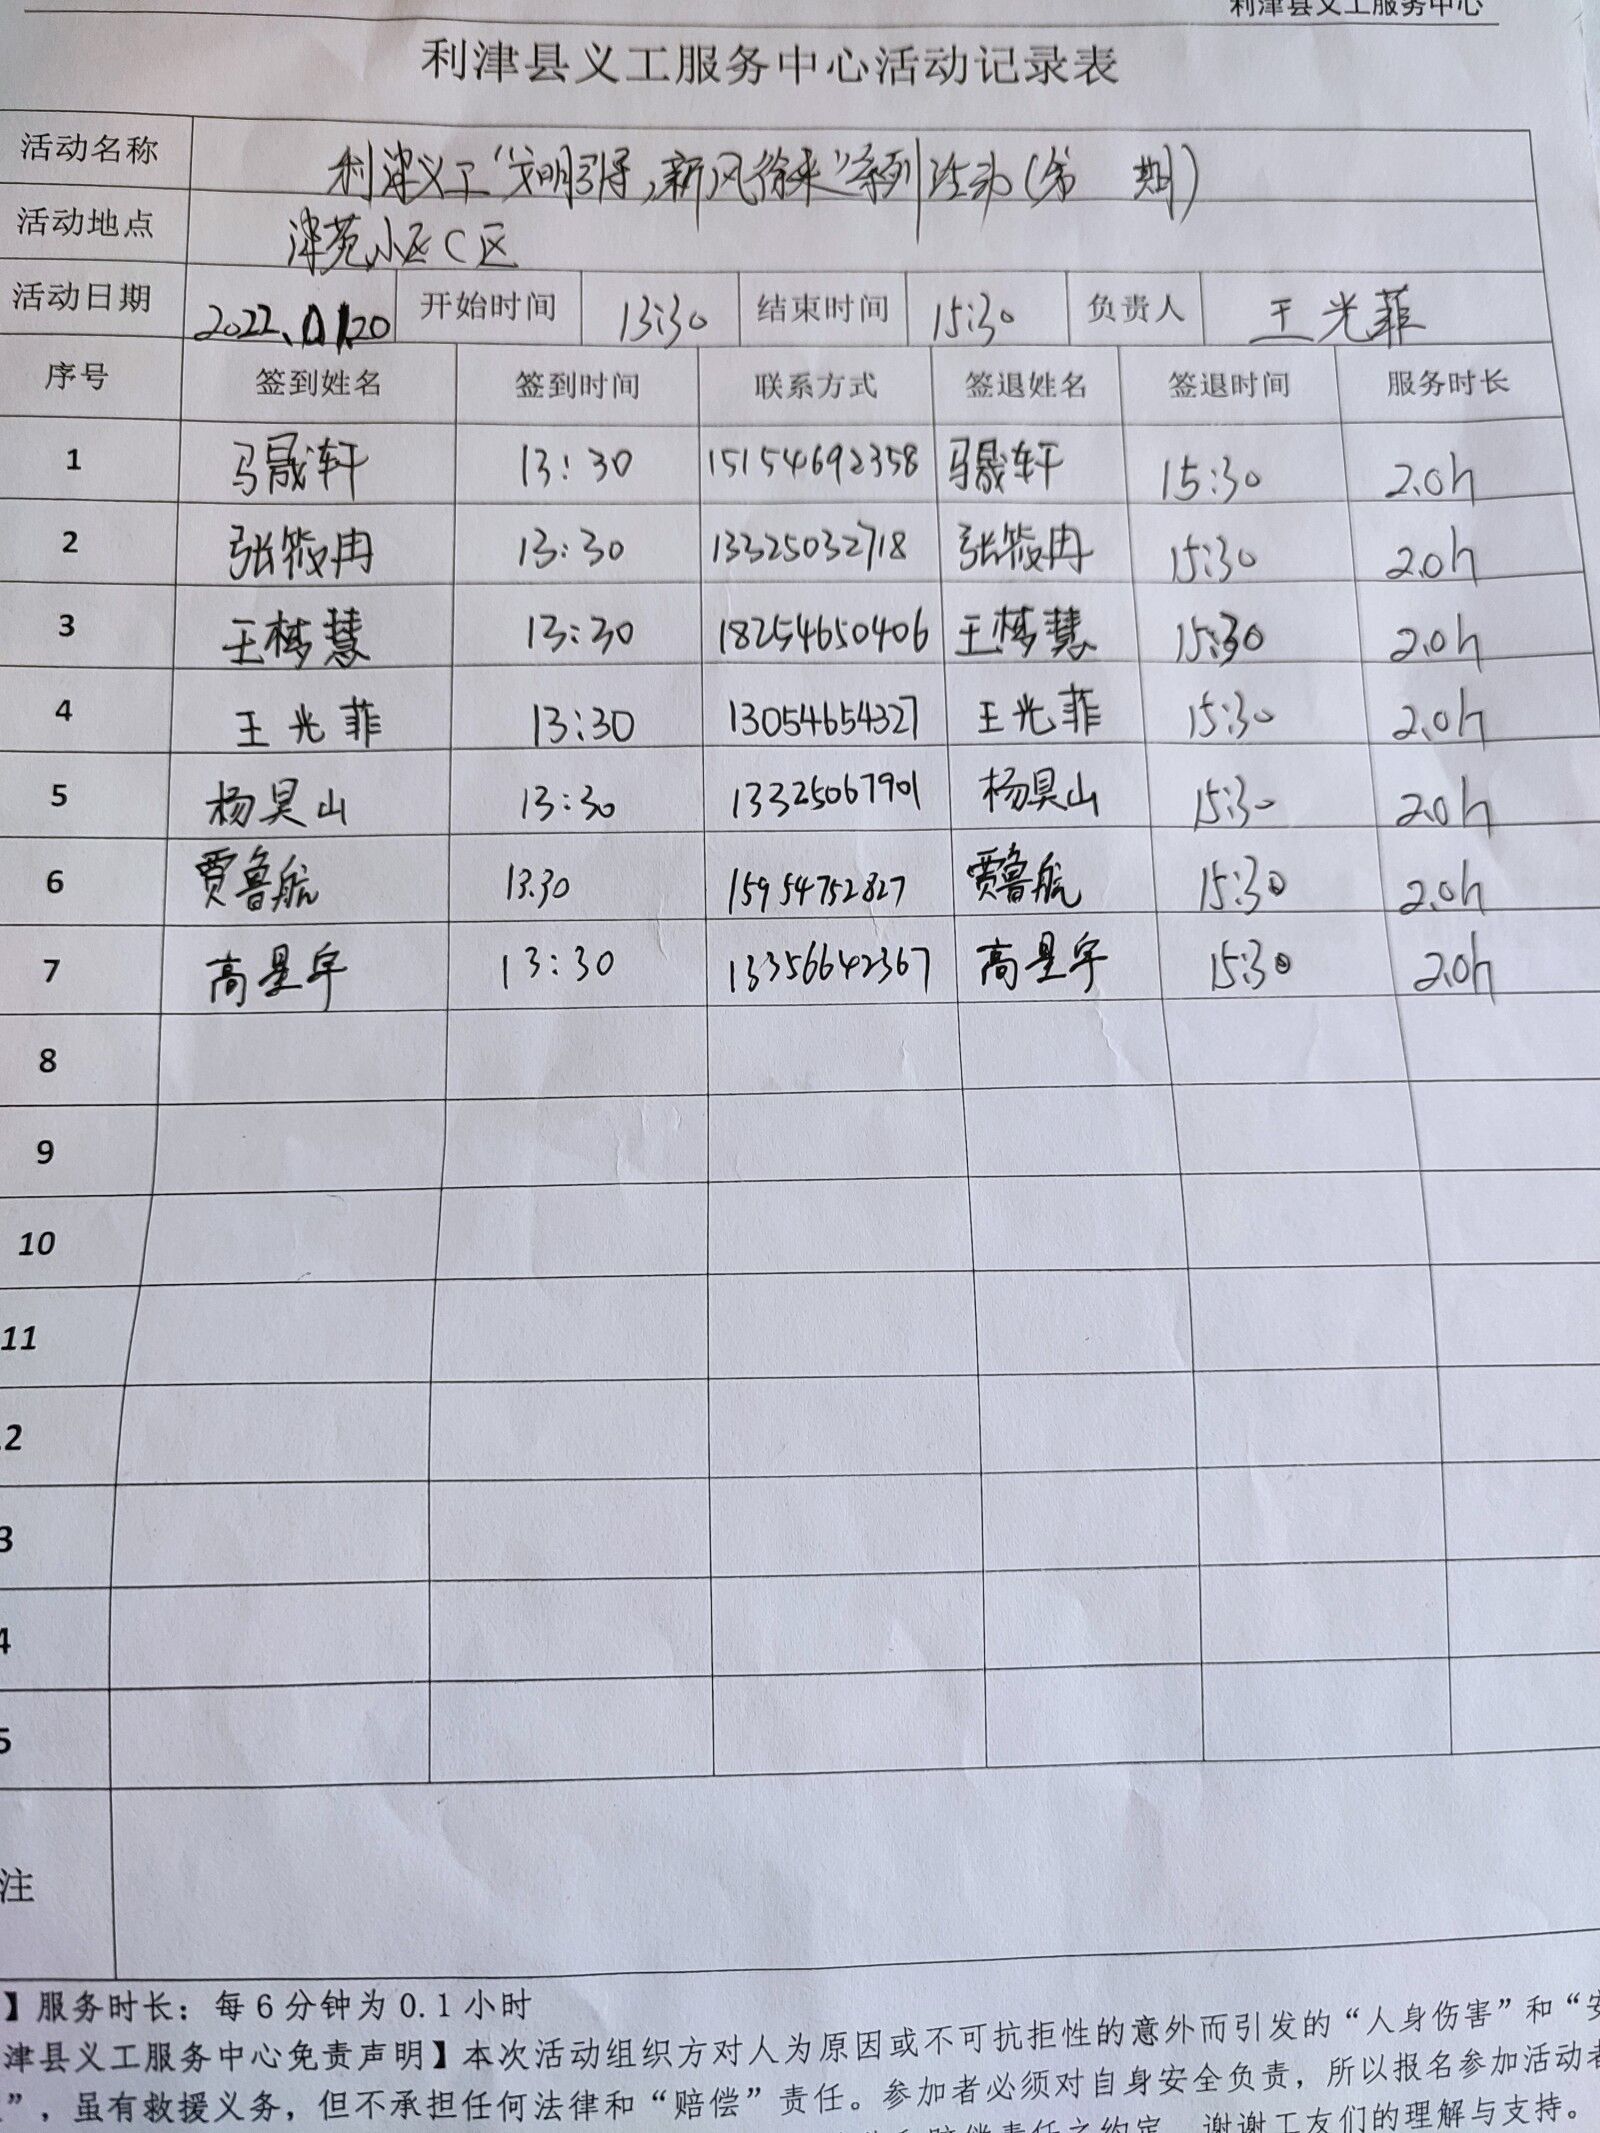 利津县义工服务中心
利津县义工服务中心活动记录表
活动名称 利津义工“文明引导,新风徐来”系列活动(第 期)
活动地点 津苑小区C区
活动日期 2022.01.20 开始时间 13:30 结束时间 15:30 负责人 王光菲
序号 签到姓名 签到时间 联系方式 签退姓名 签退时间 服务时长
1 马晟轩 13:30 15154692358 马晟轩 15:30 2.0h
2 张筱冉 13:30 13325032718 张筱冉 15:30 2.0h
3 王梦慧 13:30 18254650406 王梦慧 15:30 2.0h
4 王光菲 13:30 13054654327 王光菲 15:30 2.0h
5 杨昊山 13:30 13325067901 杨昊山 15:30 2.0h
6 贾鲁航 13:30 15954752827 贾鲁航 15:30 2.0h
7 高星宇 13:30 13356642367 高星宇 15:30 2.0h
8
9
10
11
2
3
4
5
注
】服务时长：每6分钟为0.1小时
津县义工服务中心免责声明】本次活动组织方对人为原因或不可抗拒性的意外而引发的“人身伤害”和“安
”，虽有救援义务，但不承担任何法律和“赔偿”责任。参加者必须对自身安全负责，所以报名参加活动者
赔偿责任之约定，谢谢工友们的理解与支持。